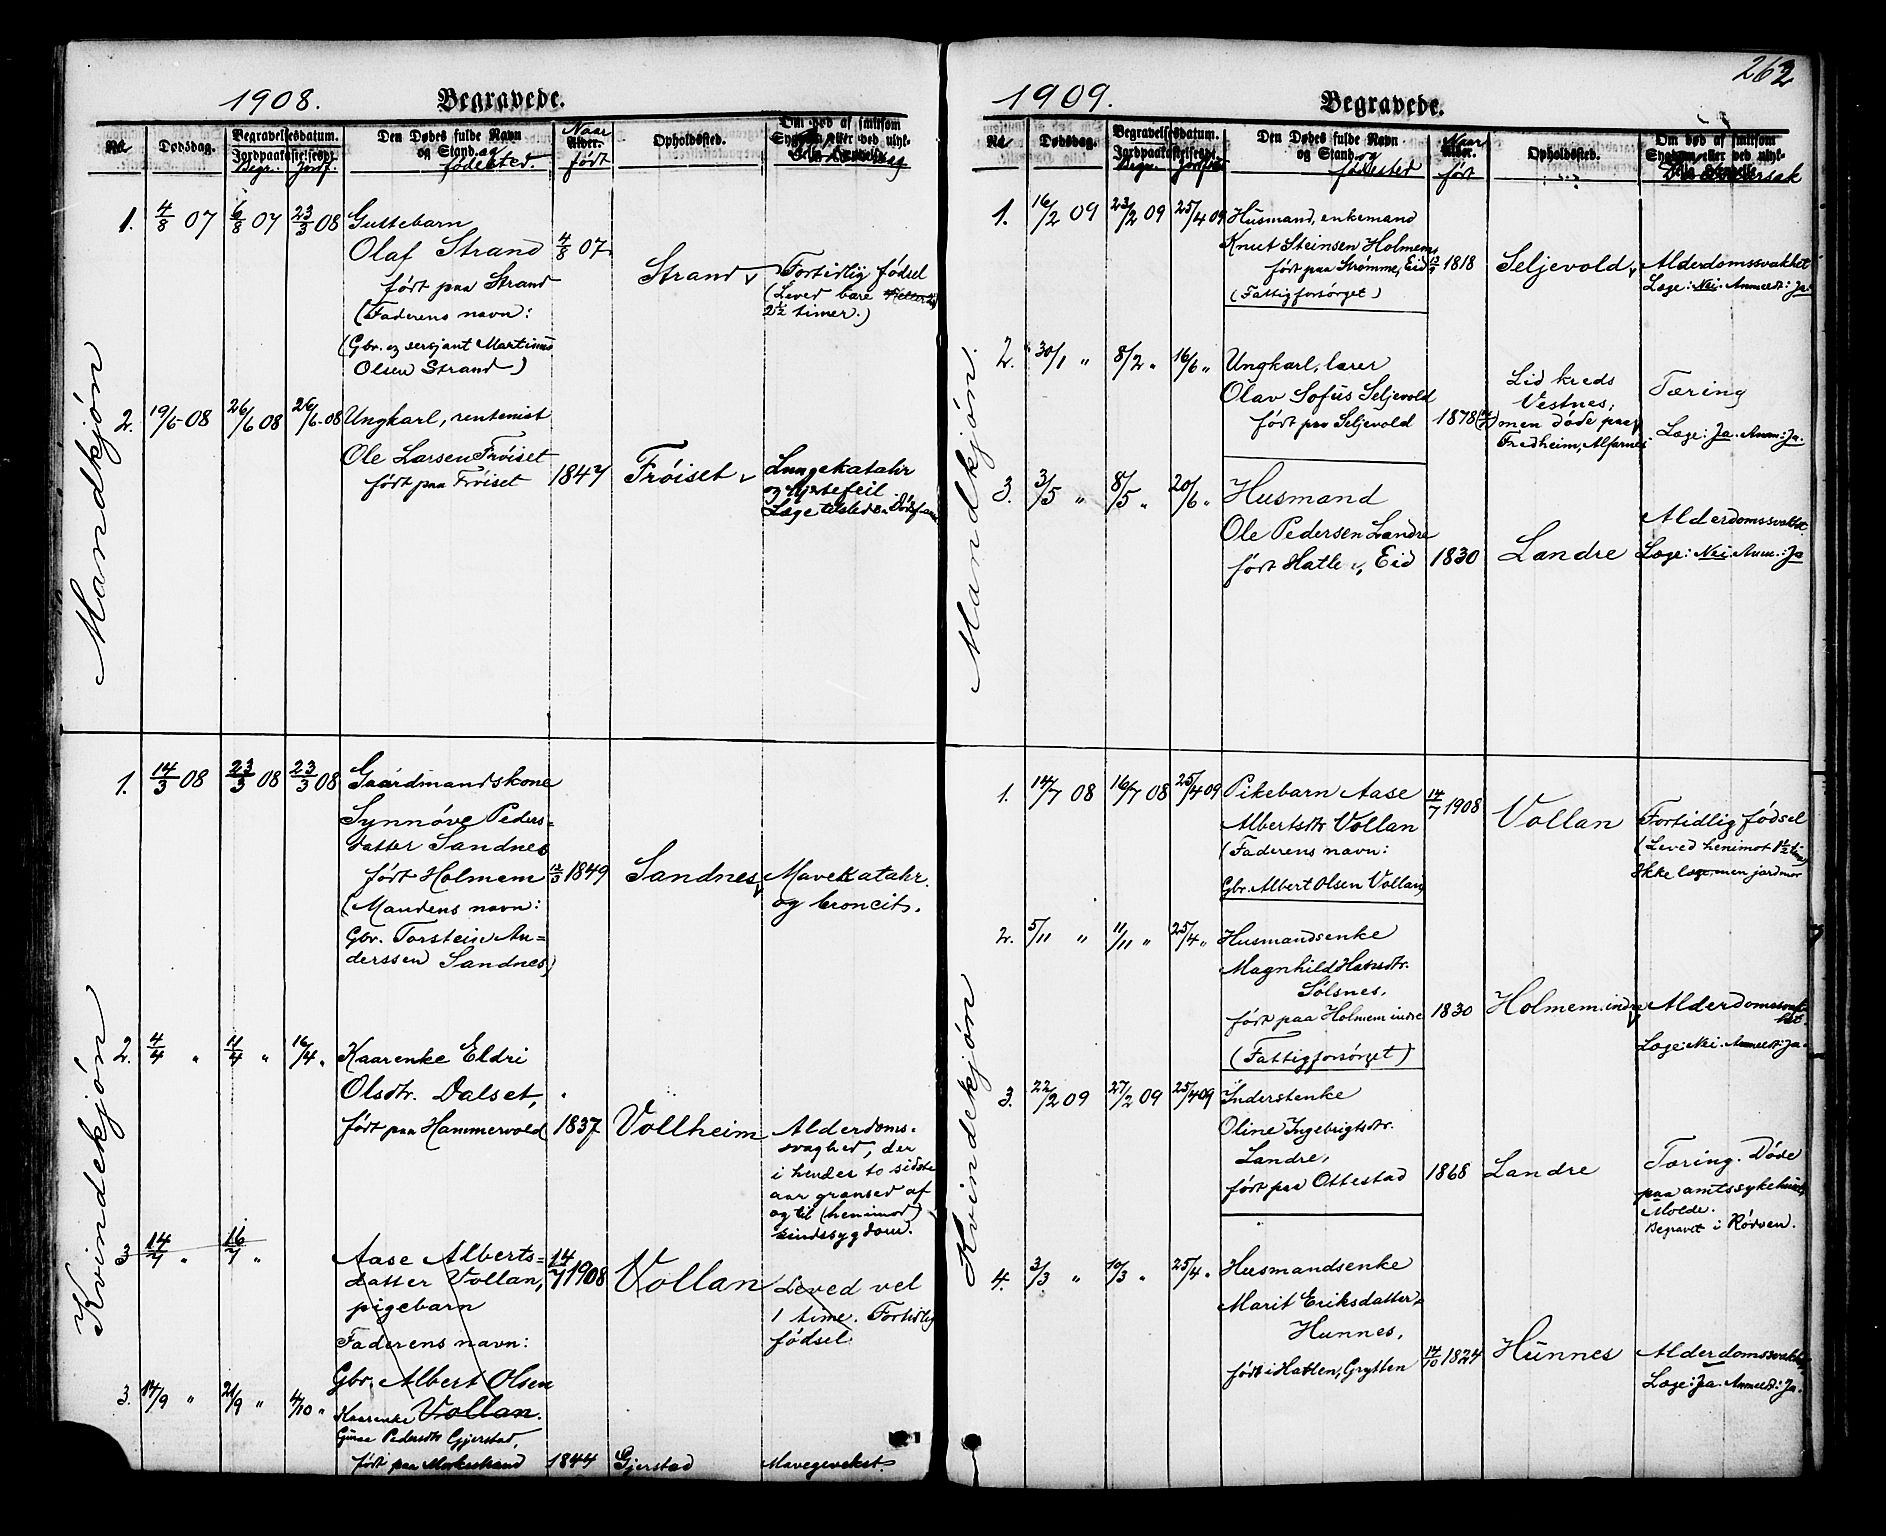 1908.
Begravede.
No
Dødsdag.
Begravelsesdatum.
Jordpaakastelsesdt.
Begr. Jordf.
Den Dødes fulde Navn
og Stand og
fødested.
Naar
Alder.
født
Opholdssted.
Om død af smitsom
Sygdom eller ved ulyk-
Mandkjøn
1. 4/8 07 6/8 07 23/3 08 Guttebarn
Olaf Strand 4/8 07
født paa Strand
(Faderens navn:
(Gbr. og sersjant Martinus
Olsen Strand)
Strand
Fortidlig fødsel
(Leved bare
2½ timer.)
2. 19/6 08 26/6 08 26/6 08 Ungkarl, rentenist
Ole Larsen Frøiset
født paa Frøiset
1847 Frøiset
Lungekatahr
og hjertefeil
Læge tilsted
Kvindekjøn
1. 14/3 08 23/3 08 23/3 08 Gaardmandskone
Synnøve Peders=
datter Sandnes
født Holmem 1849
(Mandens navn:
Gbr. Torstein An=
derssen Sandnes)
Sandnes
Mavekatahr.
og broncit.
2. 4/4 " 11/4 " 16/4 " Kaarenke Eldri
Olsdtr. Dalset,
født paa Hammervold 1837
Vollheim
Alderdoms-
svaghed, der
i hendes to sidste
aar grænsed af
og til (henimod)
sindssygdom.
3 14/7 " 16/7 "
Aase Alberts=
datter Vollan,
pigebarn
Faderens navn:
Gbr. Albert Olsen
Vollan.
14/7 1908 Vollan
Leved vel
1 time. Fortidlig
fødsel
3. 14/9 " 21/9 " 4/10 " Kaarenke
Pedersdtr Gjerstad,
født paa 1844 Gjerstad
262
1909.
Begravede.
No
Dødsdag.
Begravelsesdatum.
Jordpaakastelsesdt.
Begr. Jordf.
Den Dødes fulde Navn
og Stand og
fødested
Naar
Alder.
født
Opholdssted.
Om død af smitsom
Sygdom eller ved ulyk-
Dødsaarsak
Mandkjøn.
1. 16/2 09 23/2 09 25/4 09 Husmand, enkemand
Knut Steinsen Holmem
født paa Strømme, Eid 1818
(Fattigforsørget)
Seljevold
Alderdomssvakhet
Læge: Nei. Anmeldt: Ja.
2. 30/1 " 8/2 " 16/6 " Ungkarl, lærer
Olav Sofus Seljevold
født paa Seljevold
1878
Lid kreds
Vestnes,
men døde paa
Fredheim, Alfarnes
Tæring
Læge: Ja. Anm: Ja.
3. 3/5 " 8/5 " 20/6 " Husmand
Ole Pedersen Landre
født Hatle i, Eid 1830
Landre
Alderdomssvakhet.
Læge: Nei. Anm.: Ja
Kvindekjøn
1. 14/7 08 16/7 08 25/4 09 Pikebarn Aase
Albertsdtr Vollan
(Faderens navn:
Gbr. Albert Olsen Vollan)
14/7 1908 Vollan
Fortidlig fødsel
(Leved henimot 1½ time)
Ikke læge, men jordmor
2. 5/11 " 11/11 " 25/4 " Husmandsenke
Magnhild Hansdtr.
Sølsnes,
født paa Holmem indre
(Fattigforsørget)
1830 Holmem indre
Alderdomssvak-
het.
Læge: Nei. Anmeldt: Ja.
3. 22/2 09 27/2 09 25/4 09 Inderstenke
Oline Ingebrigtsdtr.
Landre,
født paa Ottestad 1868
Landre
Tæring. Døde
paa amtssykehuset
Molde.
Begravet i Rødven.
4. 3/3 " 10/3 " 25/4 " Husmandsenke
Marit Eriksdatter
Hunnes,
født i Hatlen, Grytten
14/10 1824 Hunnes
Alderdomssvakhet
Læge: Ja. Anmeldt: Ja.